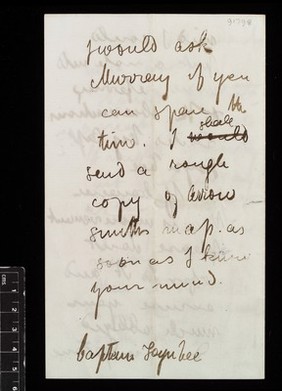 91778
I would ask
Murray if you
can spare the
time. I shall would
send a rough
copy of
smiths map. as
soon as I know
your mind.
Captain Toynbee